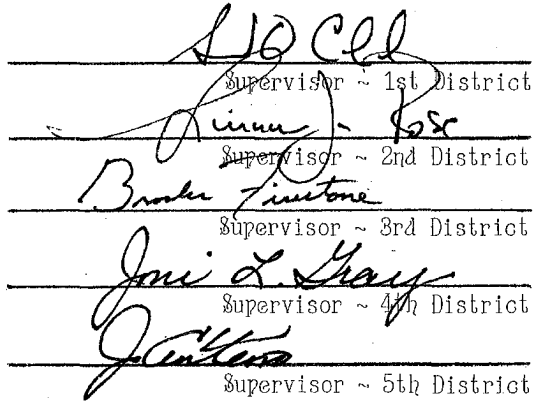 Supervisor ~ 1st District
Supervisor ~ 2nd District
Firestone
Supervisor ~ 3rd District
Joni L. Gray
Supervisor ~ 4th District
Supervisor ~ 5th District